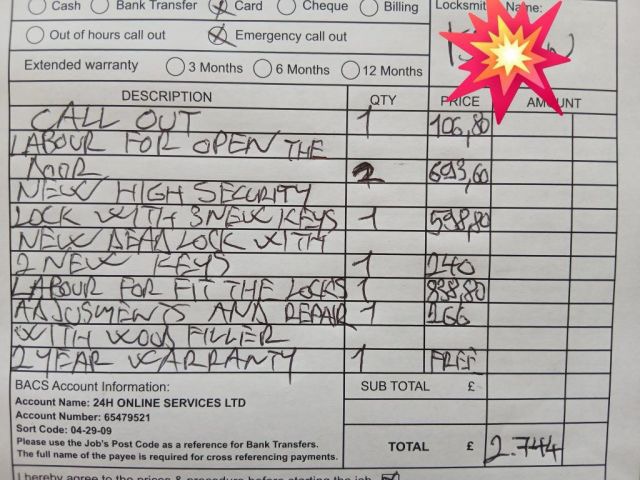 Cash Bank Transfer Card Cheque Billing
Locksmith Name:
Out of hours call out Emergency call out
Extended warranty 3 Months 6 Months 12 Months
DESCRIPTION QTY PRICE AMOUNT
CALL OUT 1 106,80
LABOUR FOR OPEN THE
DOOR 2 693,60
NEW HIGH SECURITY
LOCK WITH 3 NEW KEYS 1 598,80
NEW DEADLOCK WITH
2 NEW KEYS 1 240
LABOUR FOR FIT THE LOCKS 1 838,80
ADJUSMENTS AND REPAIR 1 266
WITH WOOD FILLER
2 YEAR WARRANTY 1 FREE
BACS Account Information:
SUB TOTAL £
Account Name: 24H ONLINE SERVICES LTD
Account Number: 65479521
Sort Code: 04-29-09
Please use the Job's Post Code as a reference for Bank Transfers.
The full name of the payee is required for cross referencing payments.
TOTAL £ 2.744
I hereby agree to the prices & procedure before starting the job